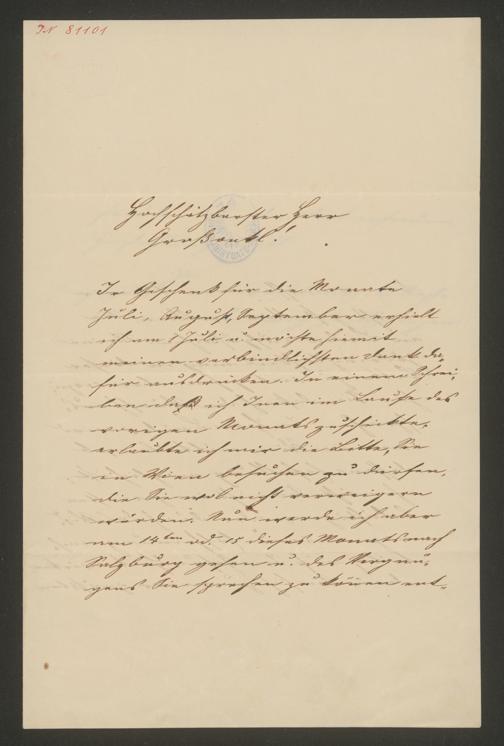 IN 81101
Hochschätzbarster Herr
Großonkl!
Ir Geschenk für die Monate
Juli, August, September erhielt
ich am 5 Juli u. möchte hiemit
meinen verbindlichsten Dank da,
für ausdrücken. In einem Schrei,
ben daß ich Inen im Laufe des
vorigen Monats zuschickte,
erlaubte ich mir die Bitte, Sie
in Wien besuchen zu dürfen,
die Sie wol nicht verweigern
würden. Nun werde ich aber
am 14ten od. 15 dieses Monats nach
Salzburg gehen u. des Vergnü,
gens Sie sprechen zu können ent-